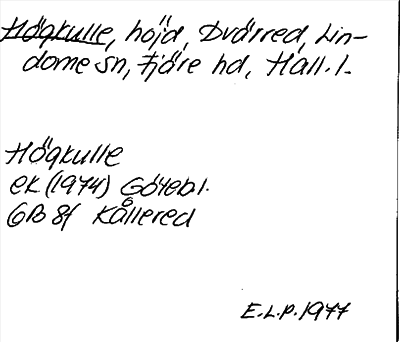 Högkulle, höjd, Dvärred, Lin-
dome sn, Fjäre hd, Hall. l.
Högkulle
ek (1974) Götebl.
6B 8f Kållered
E.L.P. 1977